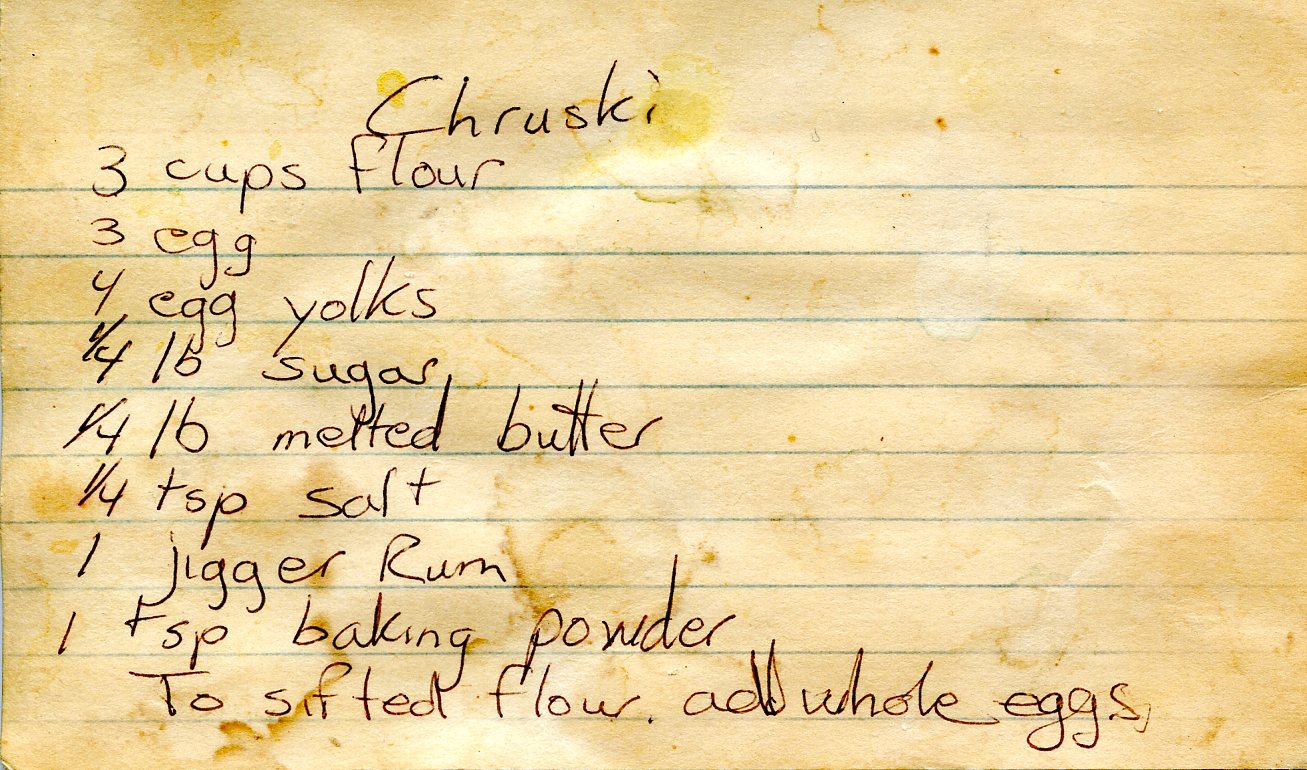 Chruski
3 cups flour
3 egg
4 egg yolks
1/4 lb sugar
1/4 lb melted butter
1/4 tsp salt
1 jigger Rum
1 tsp baking powder
To sifted flour. add whole eggs,